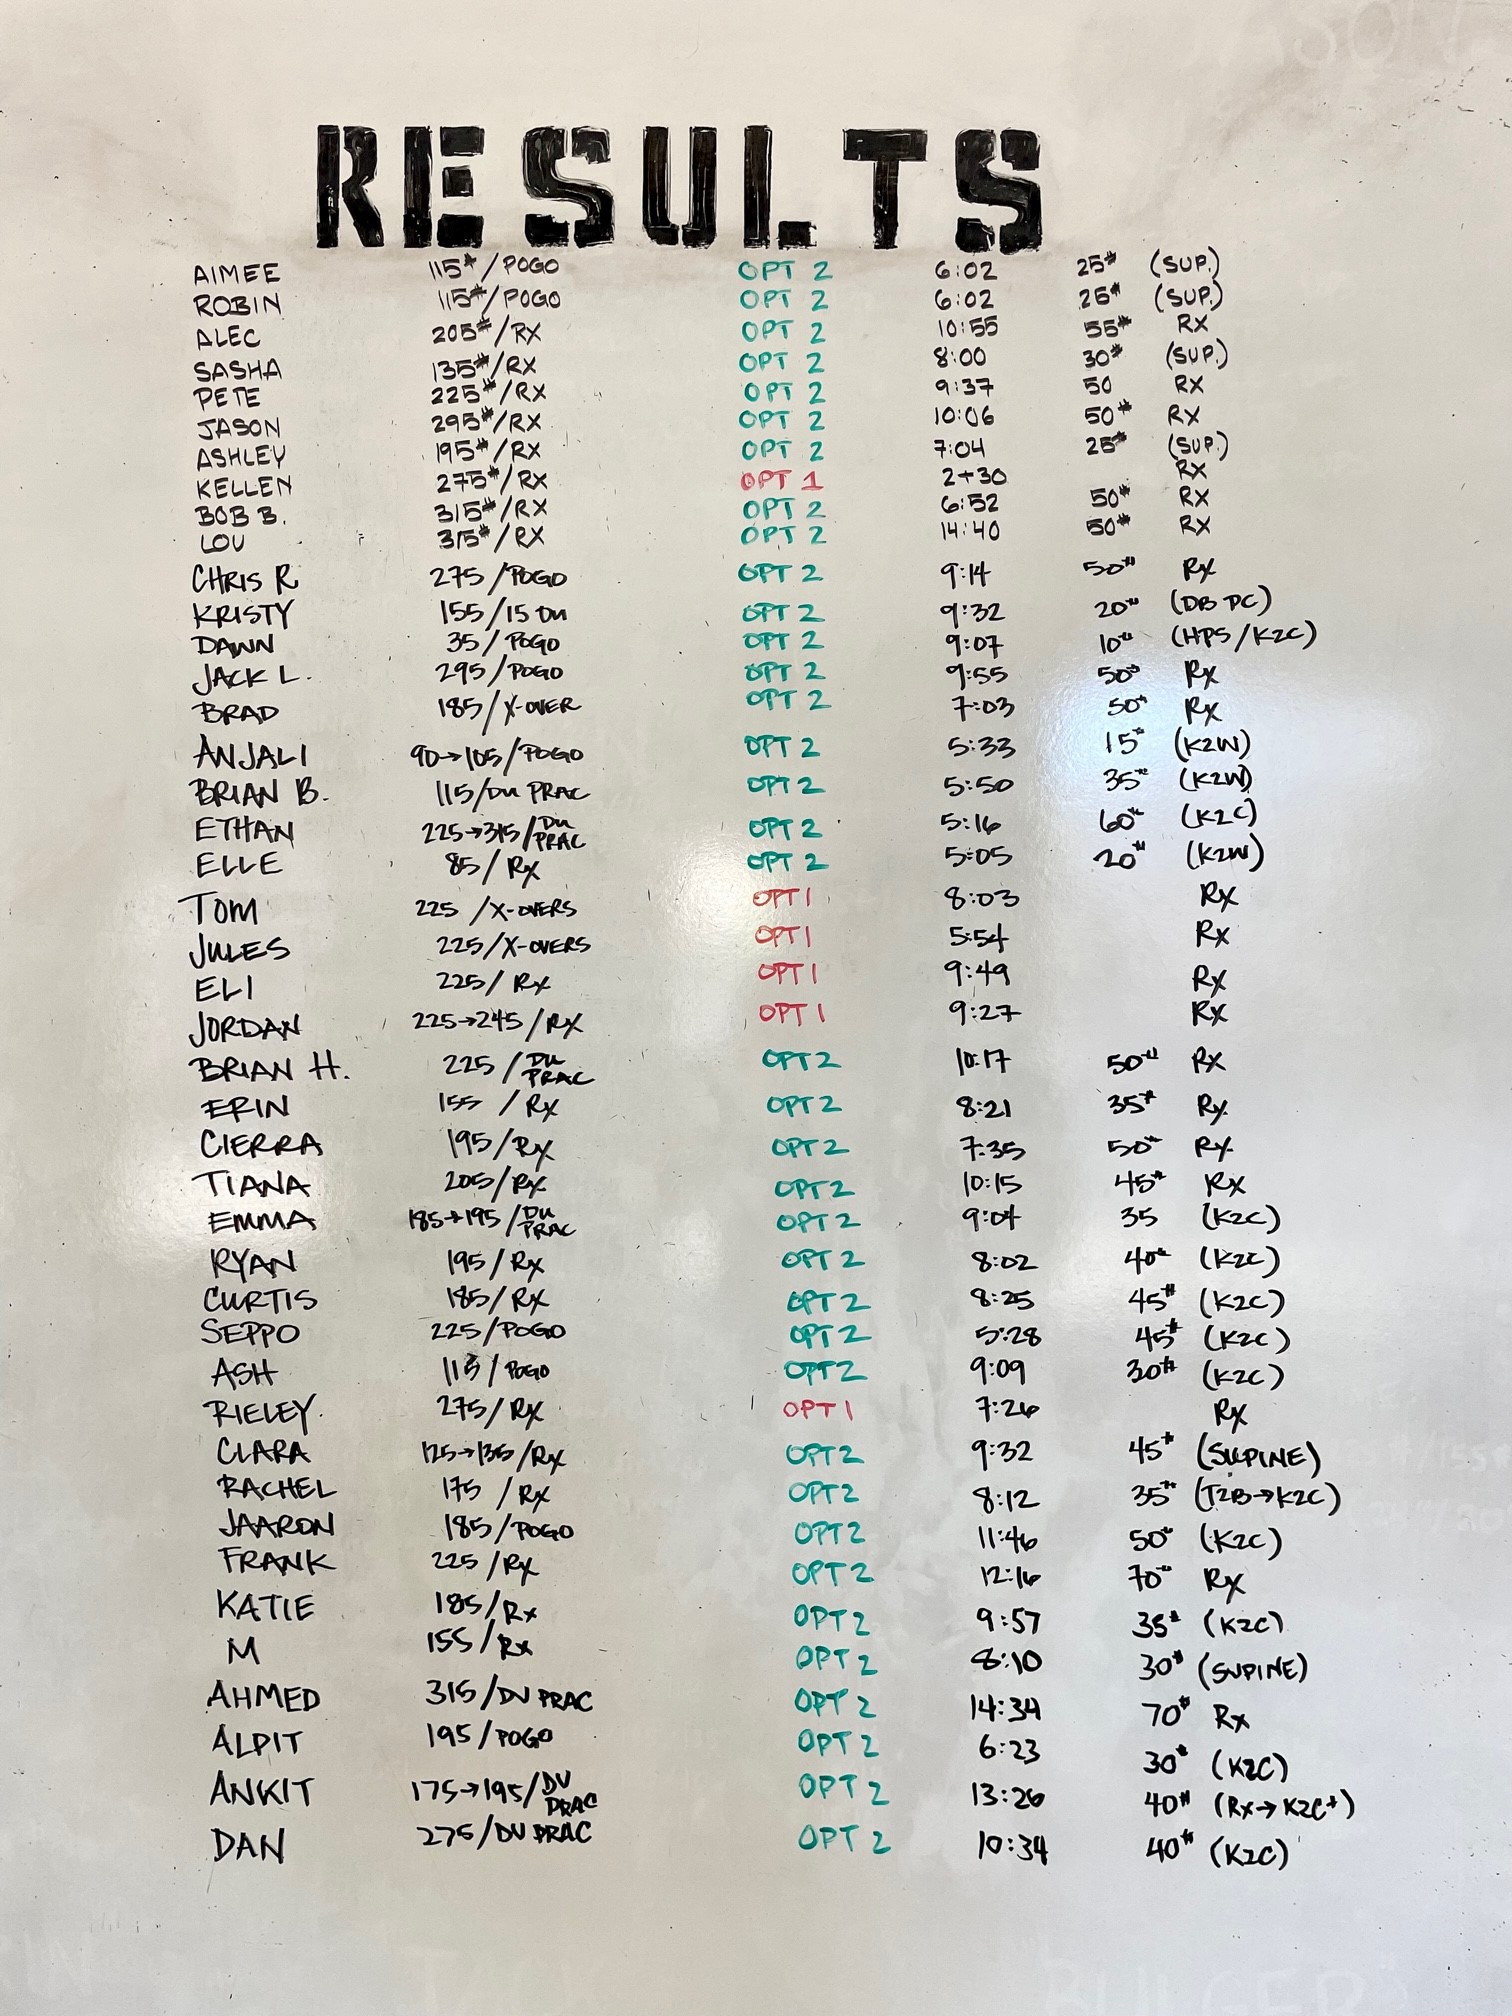 RESULTS
AIMEE 115#/POGO OPT 2 6:02 25# (SUP.)
ROBIN 115#/POGO OPT 2 6:02 25# (SUP.)
ALEC 205#/RX OPT 2 10:55 55# RX
SASHA 135#/RX OPT 2 8:00 30# (SUP.)
PETE 225#/RX OPT 2 9:37 50 RX
JASON 295#/RX OPT 2 10:06 50# RX
ASHLEY 195#/RX OPT 2 7:04 25# (SUP.)
KELLEN 275#/RX OPT 1 2+30 RX
BOB B. 315#/RX OPT 2 6:52 50# RX
LOU 315#/RX OPT 2 14:40 50# RX
CHRIS R 275/POGO OPT 2 9:14 50# Rx
KRISTY 155/15 DU OPT 2 9:32 20# (DB PC)
DAWN 35/POGO OPT 2 9:07 10# (HPS/K2C)
JACK L. 295/POGO OPT 2 9:55 50# Rx
BRAD 185/X-OVER OPT 2 7:03 50# Rx
ANJALI 90→105/POGO OPT 2 5:33 15# (K2W)
BRIAN B. 115/DU PRAC OPT 2 5:50 35# (K2W)
ETHAN 225→315/DU PRAC OPT 2 5:16 60# (K2C)
ELLE 85/Rx OPT 2 5:05 20# (K2W)
TOM 225/X-OVERS OPT 1 8:03 Rx
JULES 225/X-OVERS OPT 1 5:54 Rx
ELI 225/Rx OPT 1 9:49 Rx
JORDAN 225→245/RX OPT 1 9:27 Rx
BRIAN H. 225/DU PRAC OPT 2 10:17 50# Rx
ERIN 155/Rx OPT 2 8:21 35# Rx
CIERRA 195/Rx OPT 2 7:35 50# Rx
TIANA 205/Rx OPT 2 10:15 45# Rx
EMMA 185→195/DU PRAC OPT 2 9:04 35 (K2C)
RYAN 195/Rx OPT 2 8:02 40# (K2C)
CURTIS 185/Rx OPT 2 8:25 45# (K2C)
SEPPO 225/POGO OPT 2 5:28 45# (K2C)
ASH 115/POGO OPT 2 9:09 30# (K2C)
RIELEY 275/RX OPT 1 7:26 Rx
CLARA 125→135/Rx OPT 2 9:32 45# (SUPINE)
RACHEL 175/Rx OPT 2 8:12 35# (T2B→K2C)
JAARON 185/POGO OPT 2 11:46 50# (K2C)
FRANK 225/Rx OPT 2 12:16 70# Rx
KATIE 185/Rx OPT 2 9:57 35# (K2C)
M 155/Rx OPT 2 8:10 30# (SUPINE)
AHMED 315/DU PRAC OPT 2 14:34 70# Rx
ALPIT 195/POGO OPT 2 6:23 30# (K2C)
ANKIT 175→195/DU PRAC OPT 2 13:26 40# (Rx→K2C+)
DAN 275/DU PRAC OPT 2 10:34 40# (K2C)